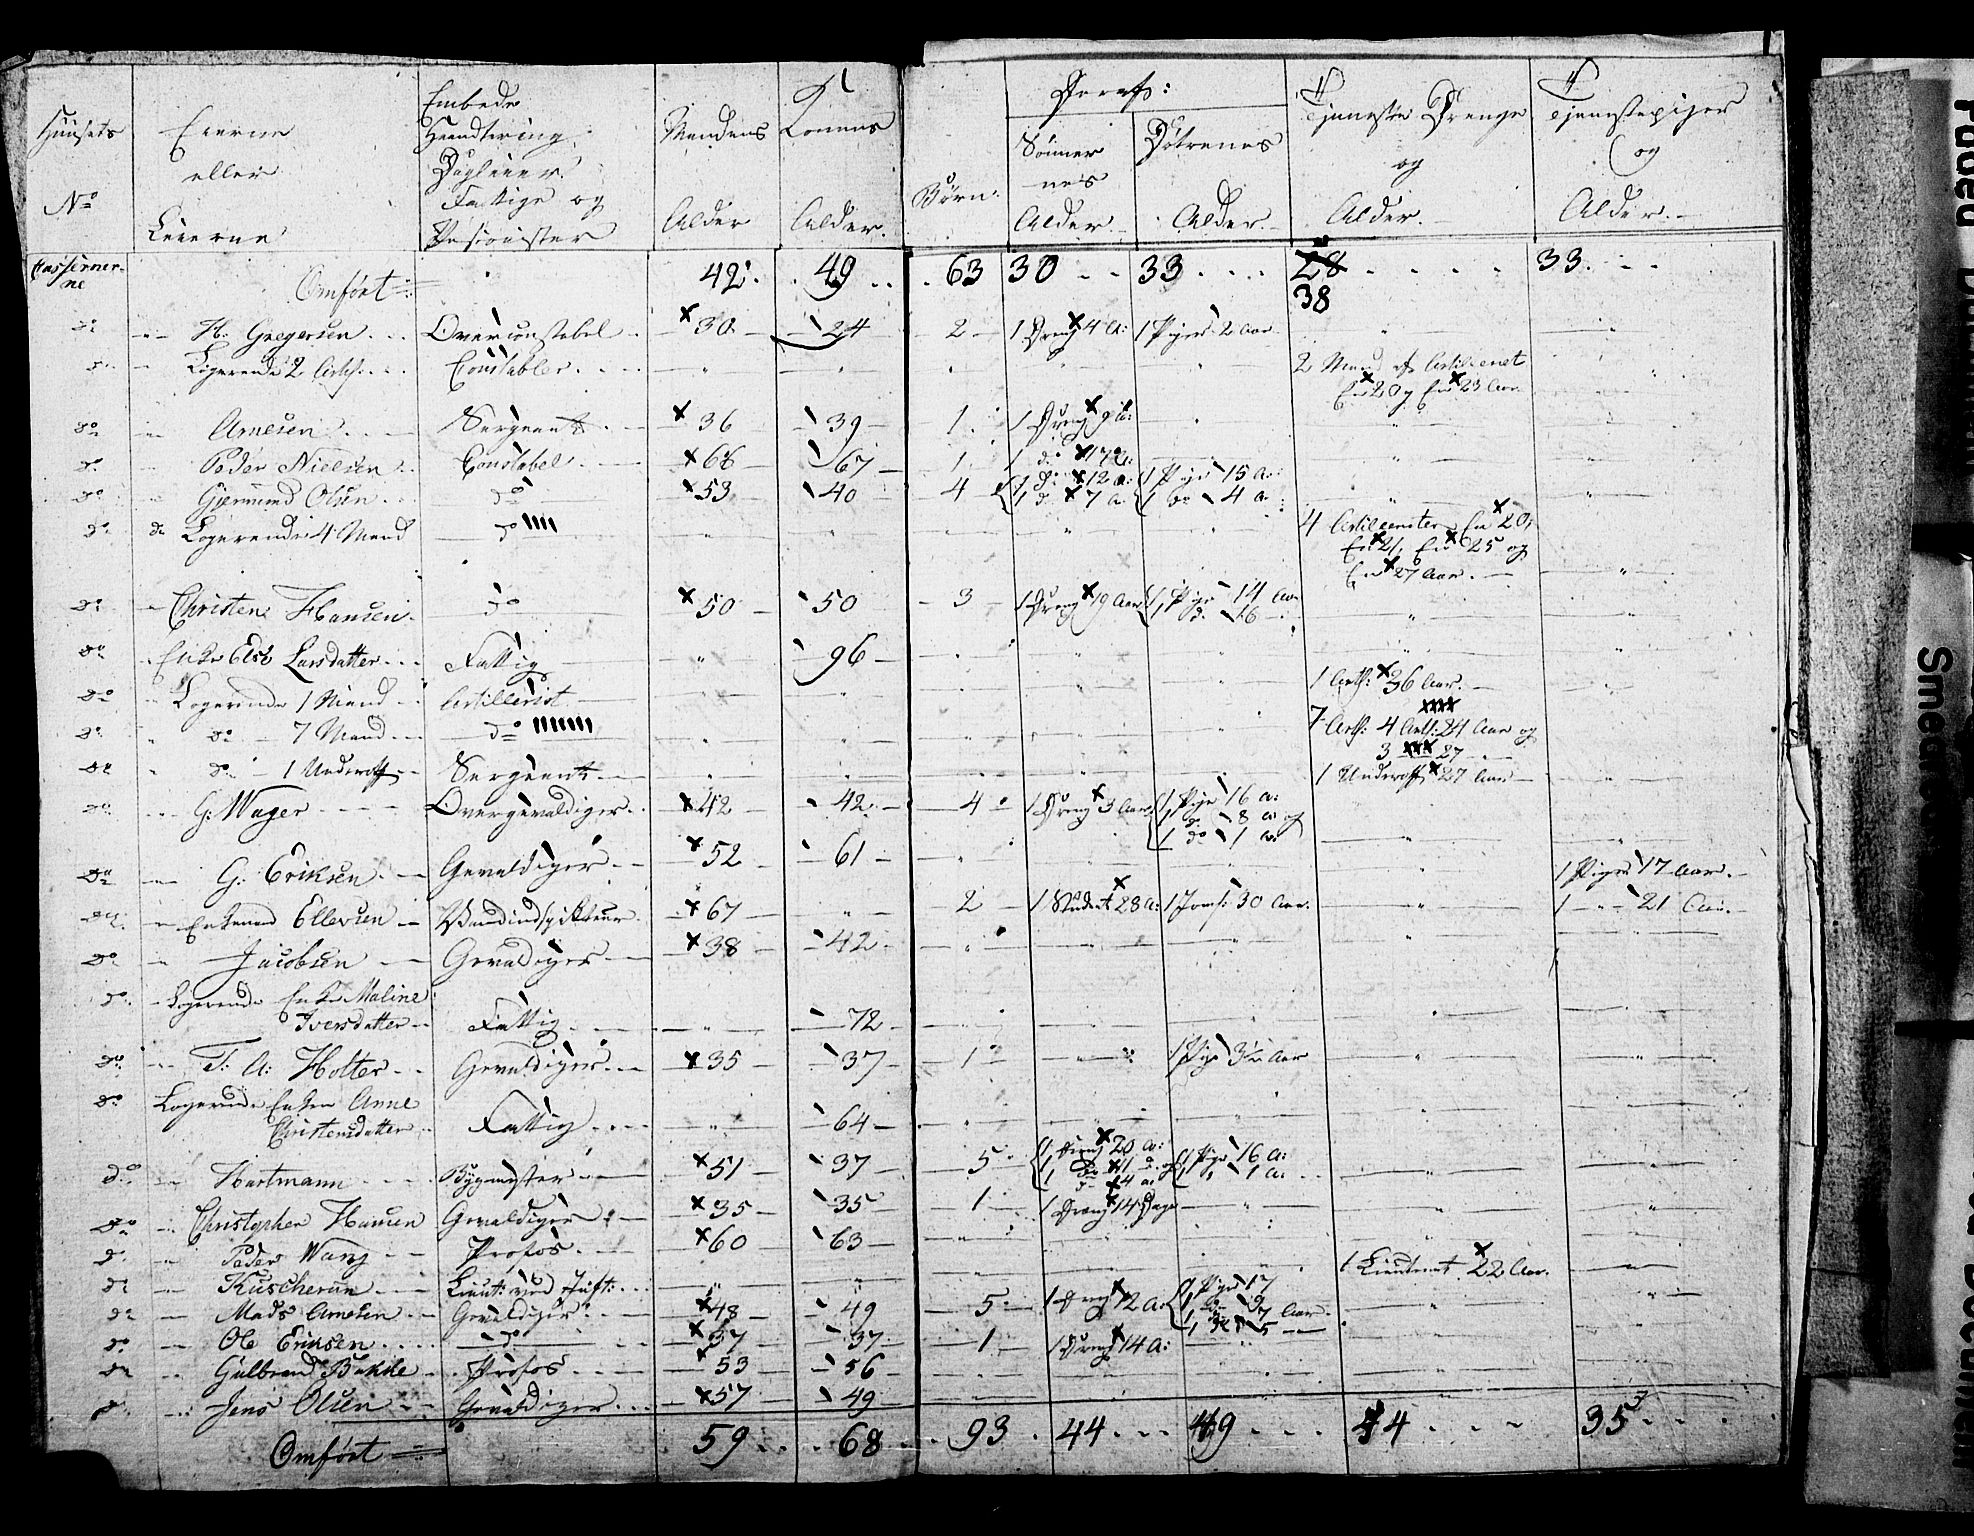 Huusets No
Eierne eller Leierne
Embede Haandtering Dagleier Fattige og Pensionister
Mandens Alder
Konens Alder.
Børn.
Deraf:
Sønner nes Alder
Døtrenes Alder.
Tjeneste Drenge og Alder.
Tjenestepiger og Alder.
Omført 42. 49 63 30 33 28 38 33
do H. Gregersen Overconstabel 30 24 2 1 Dreng 4 A: 1 Pige 2 Aar
do Logerende 2 Constabler 2 Mand af Artilleriet
En 20 og En 23 Aar
do Arnesen Sergeant 36 39 1 1 Dreng 9 A:
do Peder Nielsen Constabel 68 67 1 1 do 17 A:
do Gjermund Olsen do 53 40 4 1 do 12 A: 1 Pige 15 A:
1 do 7 A 1 do 4 A
do do Logerende 4 Mand do 4 Artillerister En 20,
En 21, En 25 og
En 27 Aar.
do Christen Hansen do 50 50 3 1 Dreng 19 Aar 1 Pige 14 Aar
1 do 16
do Enke Else Larsdatter Fattig 96
do Logerende 1 Mand Artillerist 1 Artl: 36 Aar.
do do 7 Mand do 7 Artl: 4 Artl: 24 Aar og
3 27
do do 1 Underoff Sergeant 1 Underoff 27 Aar
do G: Wager Overgevaldiger 42 42 4 1 Dreng 3 Aar 1 Pige 16 A:
1 do 8 A og
1 do 1 A
do G: Eriksen Gevaldiger 52 61 1 Pige 17 Aar.
do Enkemand Ellevsen Vandindspekteur 67 2 1 Student 28 A: 1 Jomf: 30 Aar. 1 21 Aar.
do Jacobsen Gevaldiger 38 42
do Logerende Enke Maline
Iversdatter Fattig 72
do T: A: Holter Gevaldiger 35 37 1 1 Pige 3½ Aar
do Logerende Enken Anne
Christensdatter Fattig 64
do Hartmann Bygmester 51 37 5 1 Dreng 20 A: 1 Pige 16 A:
1 do 11 do og 1 1 A:
1 do 4 A:
do Christopher Hansen Gevaldiger 35 35 1 1 Dreng 14 Dage
do Peder Wang Profos 60 63
do Kuscherun Lieut: ved 1 Lieutenant 22 Aar.
do Mads Arnesen Gevaldiger 48 49 5 1 Dreng 12 A: 1 Pige 17
1 do 9
1 do 7 Aar
1 5
do Ole Eriksen do 37 37 1 1 Dreng 14 A:
do Gulbrand Bakke Profos 53 56
do Jens Olsen Gevaldiger 57 49
Omført 59 68 93 44 49 44 35